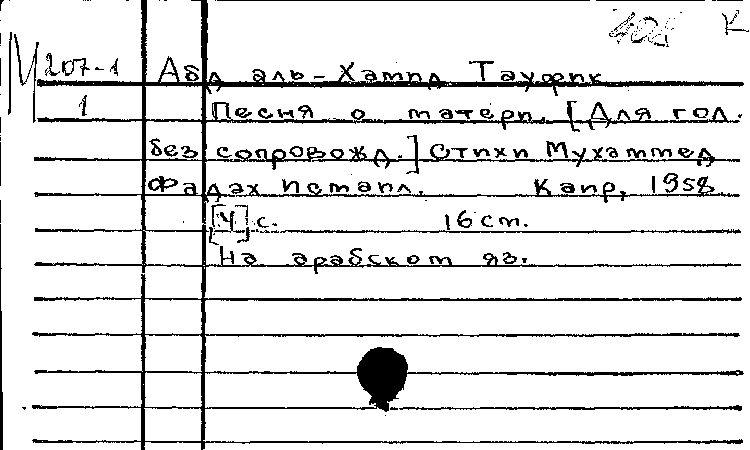 408 К
М 207-1 Абд аль-Хамид Тауфик
1 Песня о матери. [Для гол.
без сопровожд.] Стихи Мухаммед
Фадах Исмаил. Каир, 1958
[4] с. 16 cm.
На арабском яз.